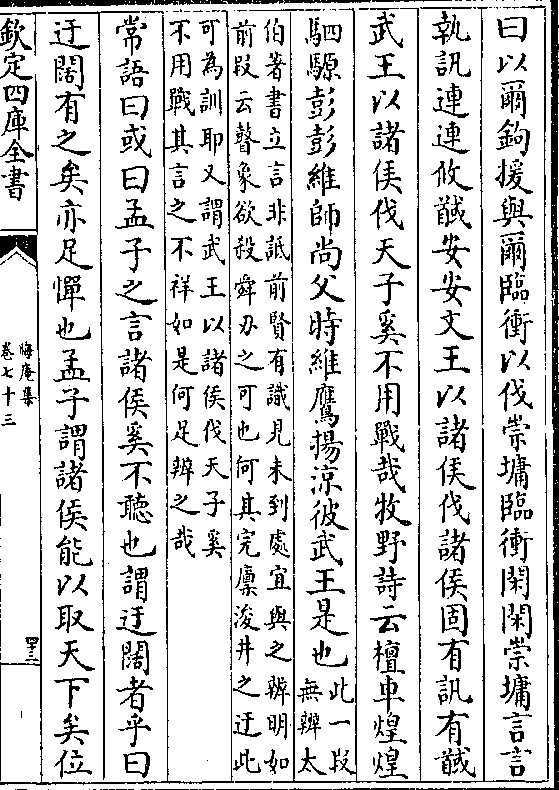 曰以爾鉤援與爾臨衝以伐崇墉臨衝閑閑崇墉言言
執訊連連攸馘安安文王以諸侯伐諸侯固有訊有馘
武王以諸侯伐天子奚不用戰哉牧野詩云檀車煌煌
駟騵彭彭維師尚父時維鷹揚涼彼武王是也此一段
無辨太
伯著書立言非詆前賢有識見未到處宜與之辨明如
前段云瞽象欲殺舜刃之可也何其完廩浚井之迂此
可為訓耶又謂武王以諸侯伐天子奚
不用戰其言之不祥如是何足辨之哉
常語曰或曰孟子之言諸侯奚不聽也謂迂闊者乎曰
迂闊有之矣亦足憚也孟子謂諸侯能以取天下矣位
欽定四庫全書
晦庵集
卷七十三
四十二